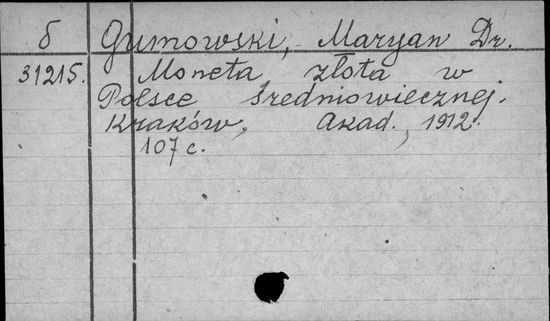 б Gumowski, Maryan Dr.
31215. Moneta złota w
Polsce średniowiecznej.
Kraków, Akad., 1912.
107 c.